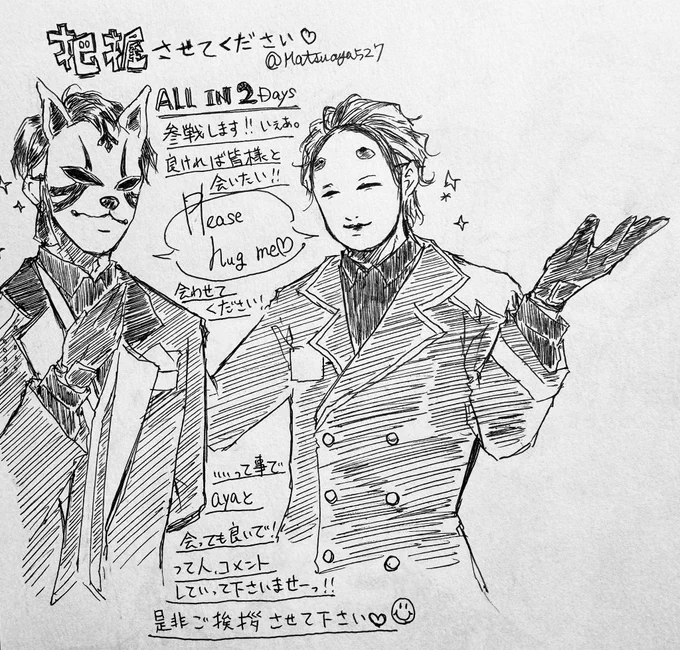 把握させてください♡
@Matsuaya527
ALL IN 2 Days
参戦します!!いぇあ。
良ければ皆様と
会いたい!!
Please
hug me♡
会わせて
ください!
....って事で
ayaと
会っても良いで!!
って人、コメント
していって下さいませーっ!!
是非ご挨拶させて下さい♡